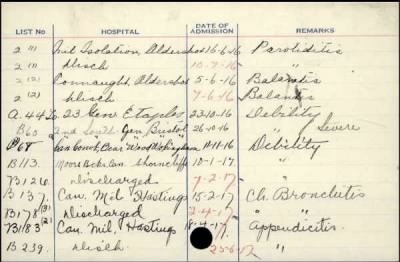 LIST No HOSPITAL DATE OF ADMISSION REMARKS
2 (1) Mil Isolation Aldershot 16-6-16 Parotiditis
2 (1) Disch 10-7-16 "
2 (2) Connaught, Aldershot 5-6-16 Balanitis
2 (2) Disch 7-6-16 Balanitis
A.44 23 Gen Etaples 23-10-16 Debility
B60 2nd South Gen Bristol 26-10-16 " Severe
B68 Can Conv, Bear Wood Wokingham 11-11-16 Debility
B113. Moore Bks Can Shorncliffe 10-1-17 "
B126. Discharged 7-2-17 "
B137. Can. Mil Hastings 15-2-17 Ch. Bronchitis
B178 (3) Discharged 2-4-17 " "
B183 (2) Can. Mil, Hastings 18-4-17. Appendicitis.
B239. Disch. 25-6-17 "